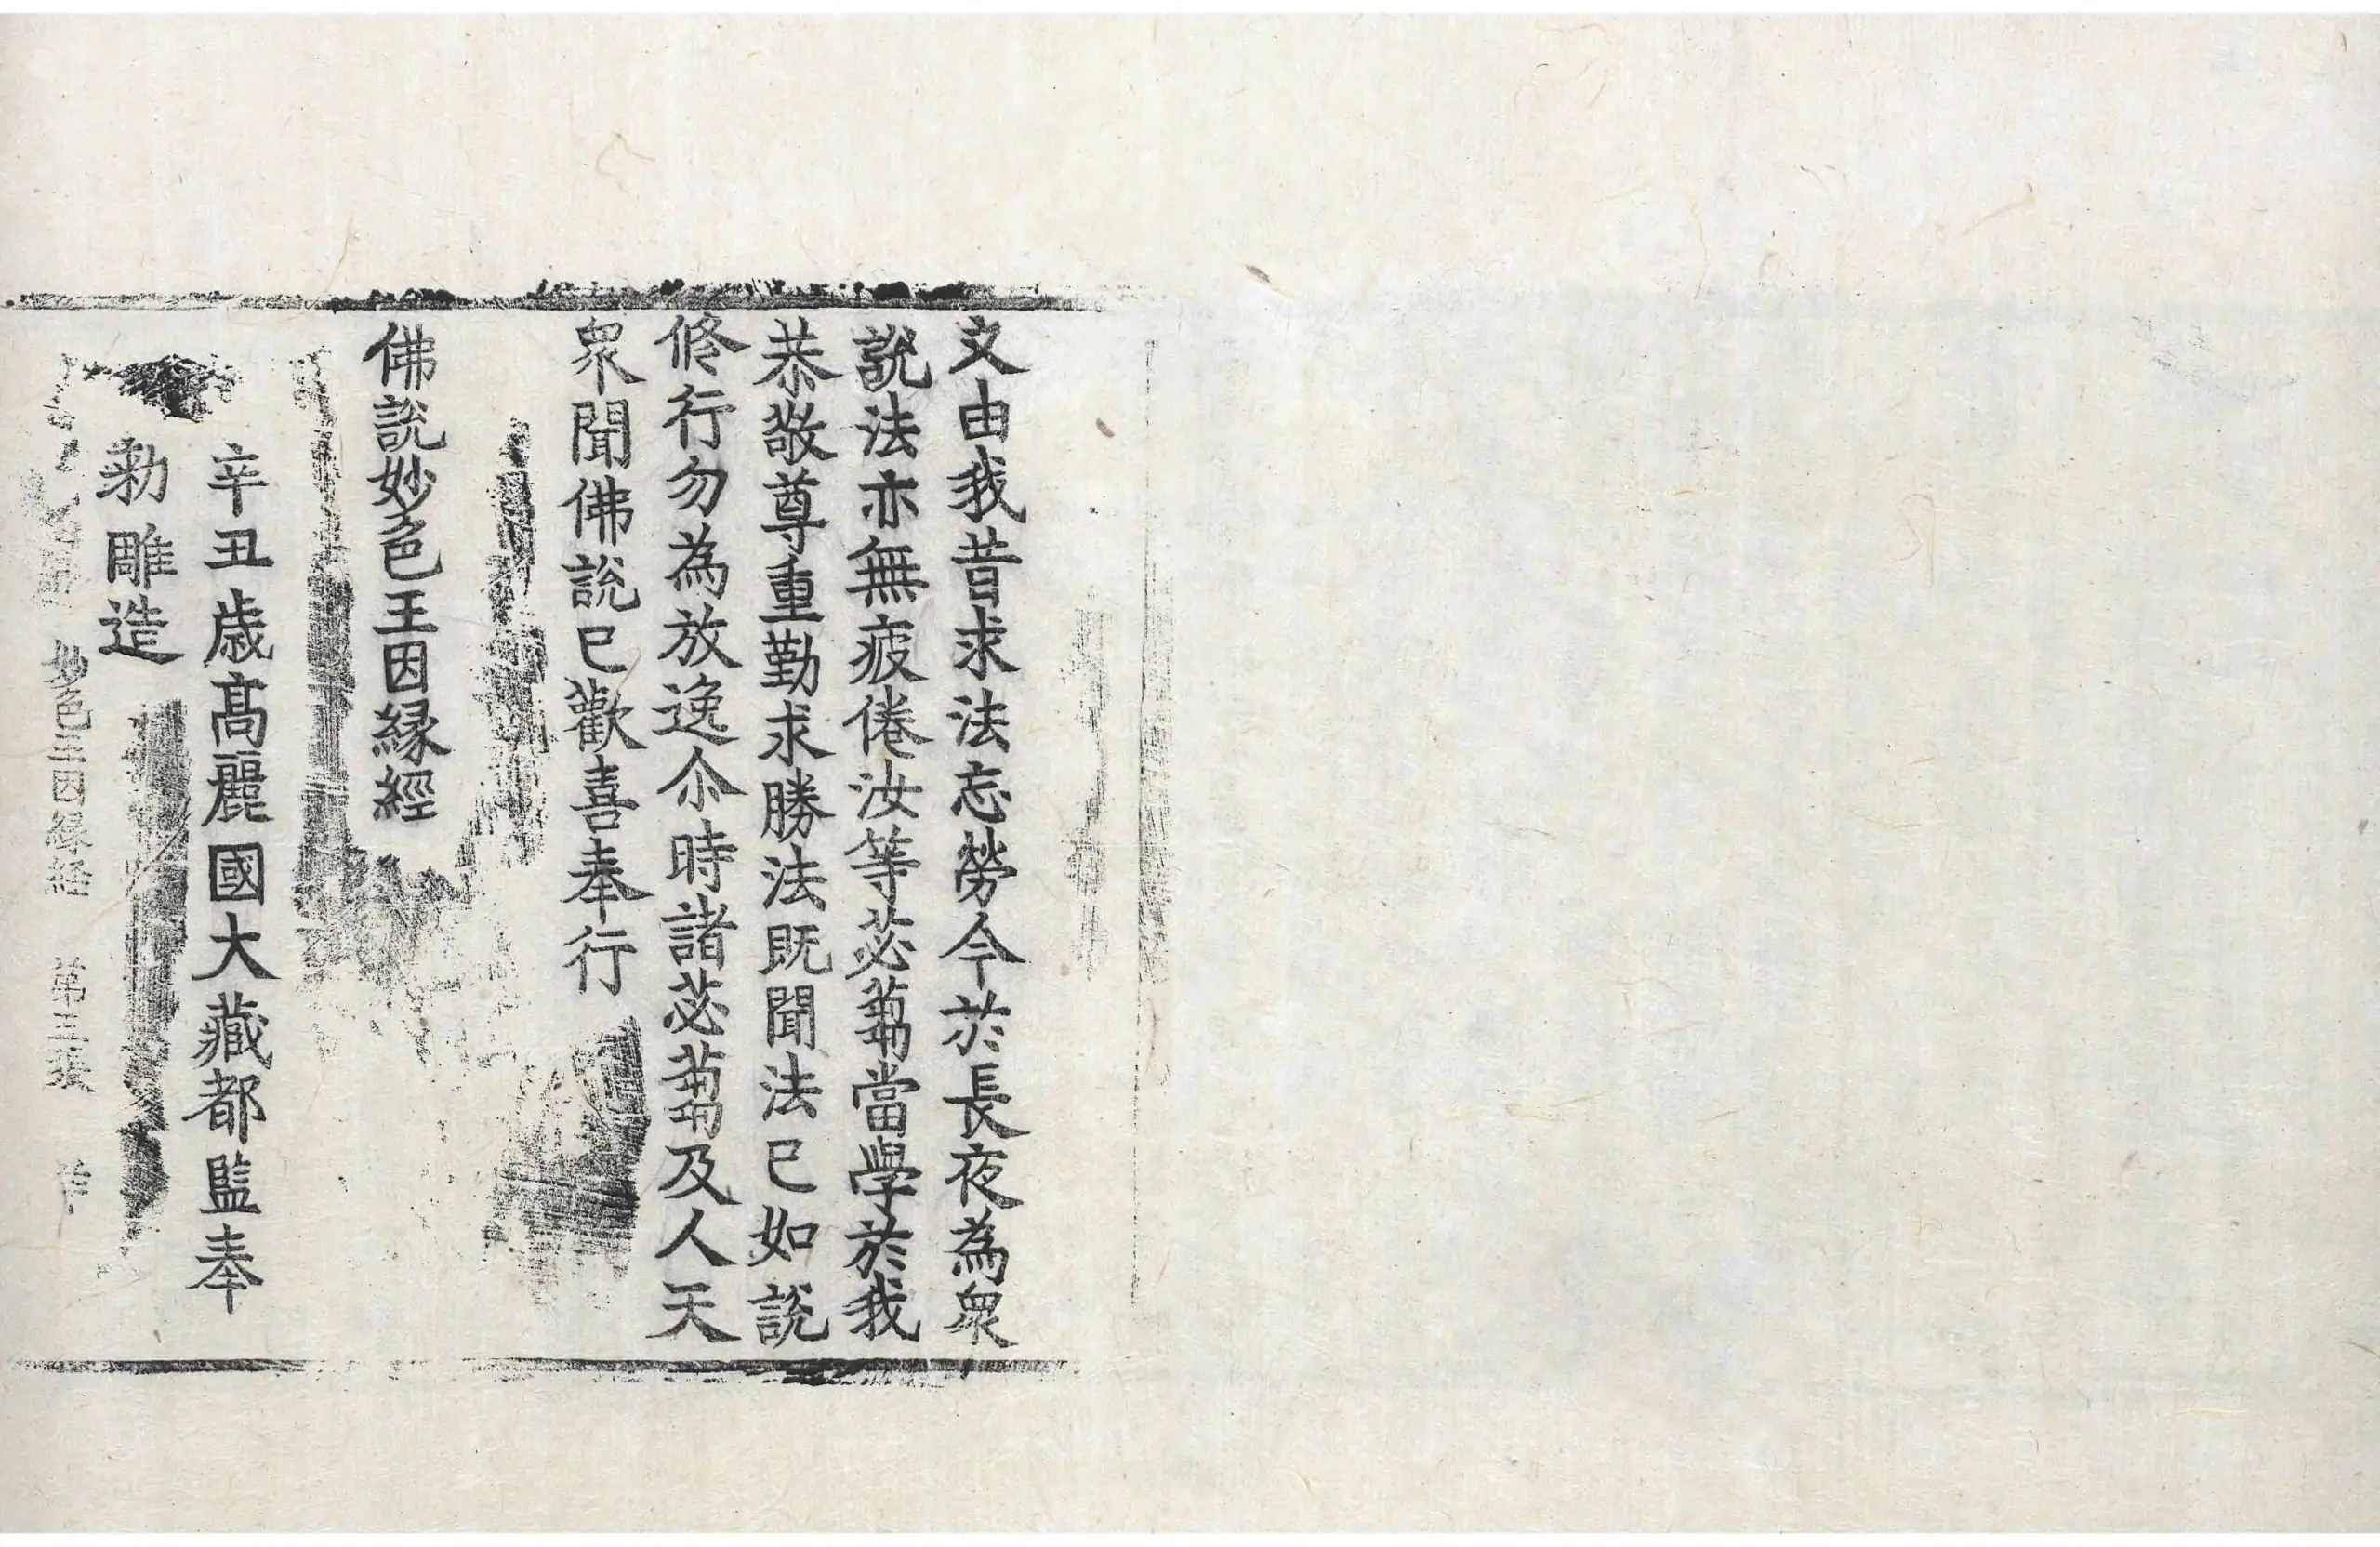 文由我昔求法忘勞今於長夜為衆
説法亦無疲倦汝等苾蒭當學於我
恭敬尊重勤求勝法既聞法已如説
修行勿為放逸尒時諸苾蒭及人天
衆聞佛説已歡喜奉行
佛説妙色王因縁經
辛丑歳髙麗國大藏都監奉
勅雕造
妙色王因縁経 第三張